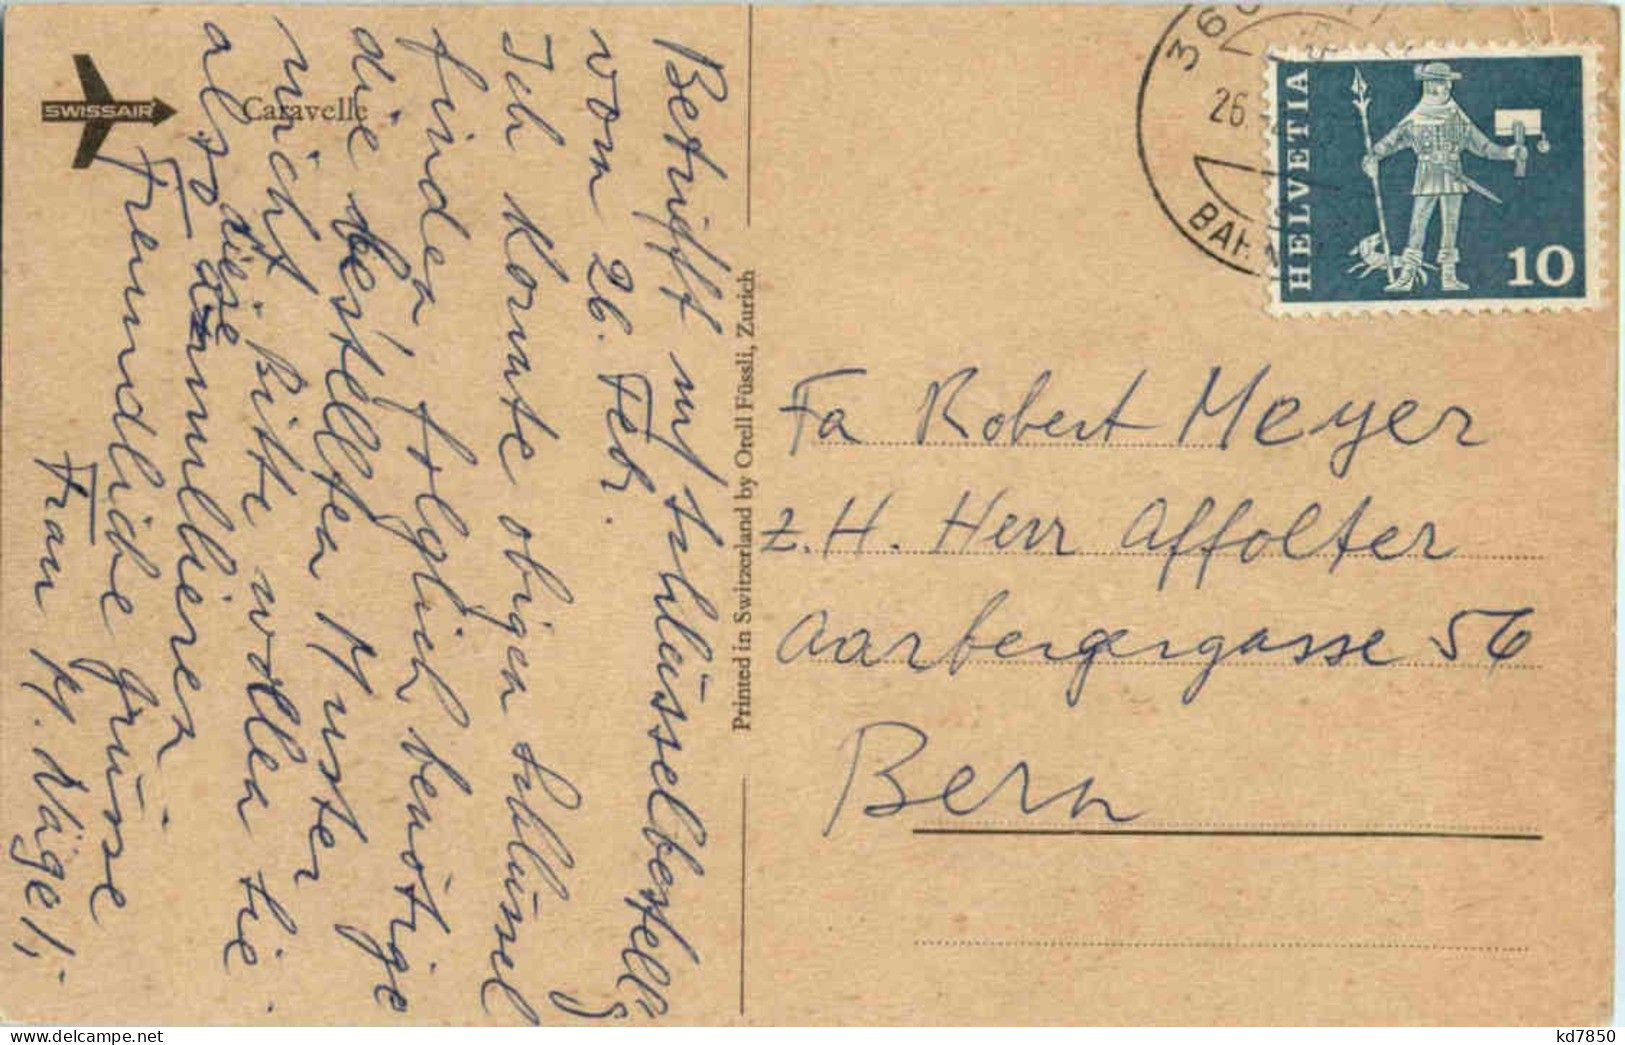 SWISSAIR
Caravelle
Betrifft
vom 26. Febr.
Ich konnte obigen Schlüssel
finden, folglich benötige
die bestellten Muster
nicht. Bitte wollen Sie
diese
also annullieren
Freundliche Grüsse
Frau M. Nägeli,-
Printed in Switzerland by Orell Füssli, Zurich
26.
BAH
HELVETIA
10
Fa Robert Meyer
z.H. Herr Affolter
Aarbergergasse 56
Bern
kd7850